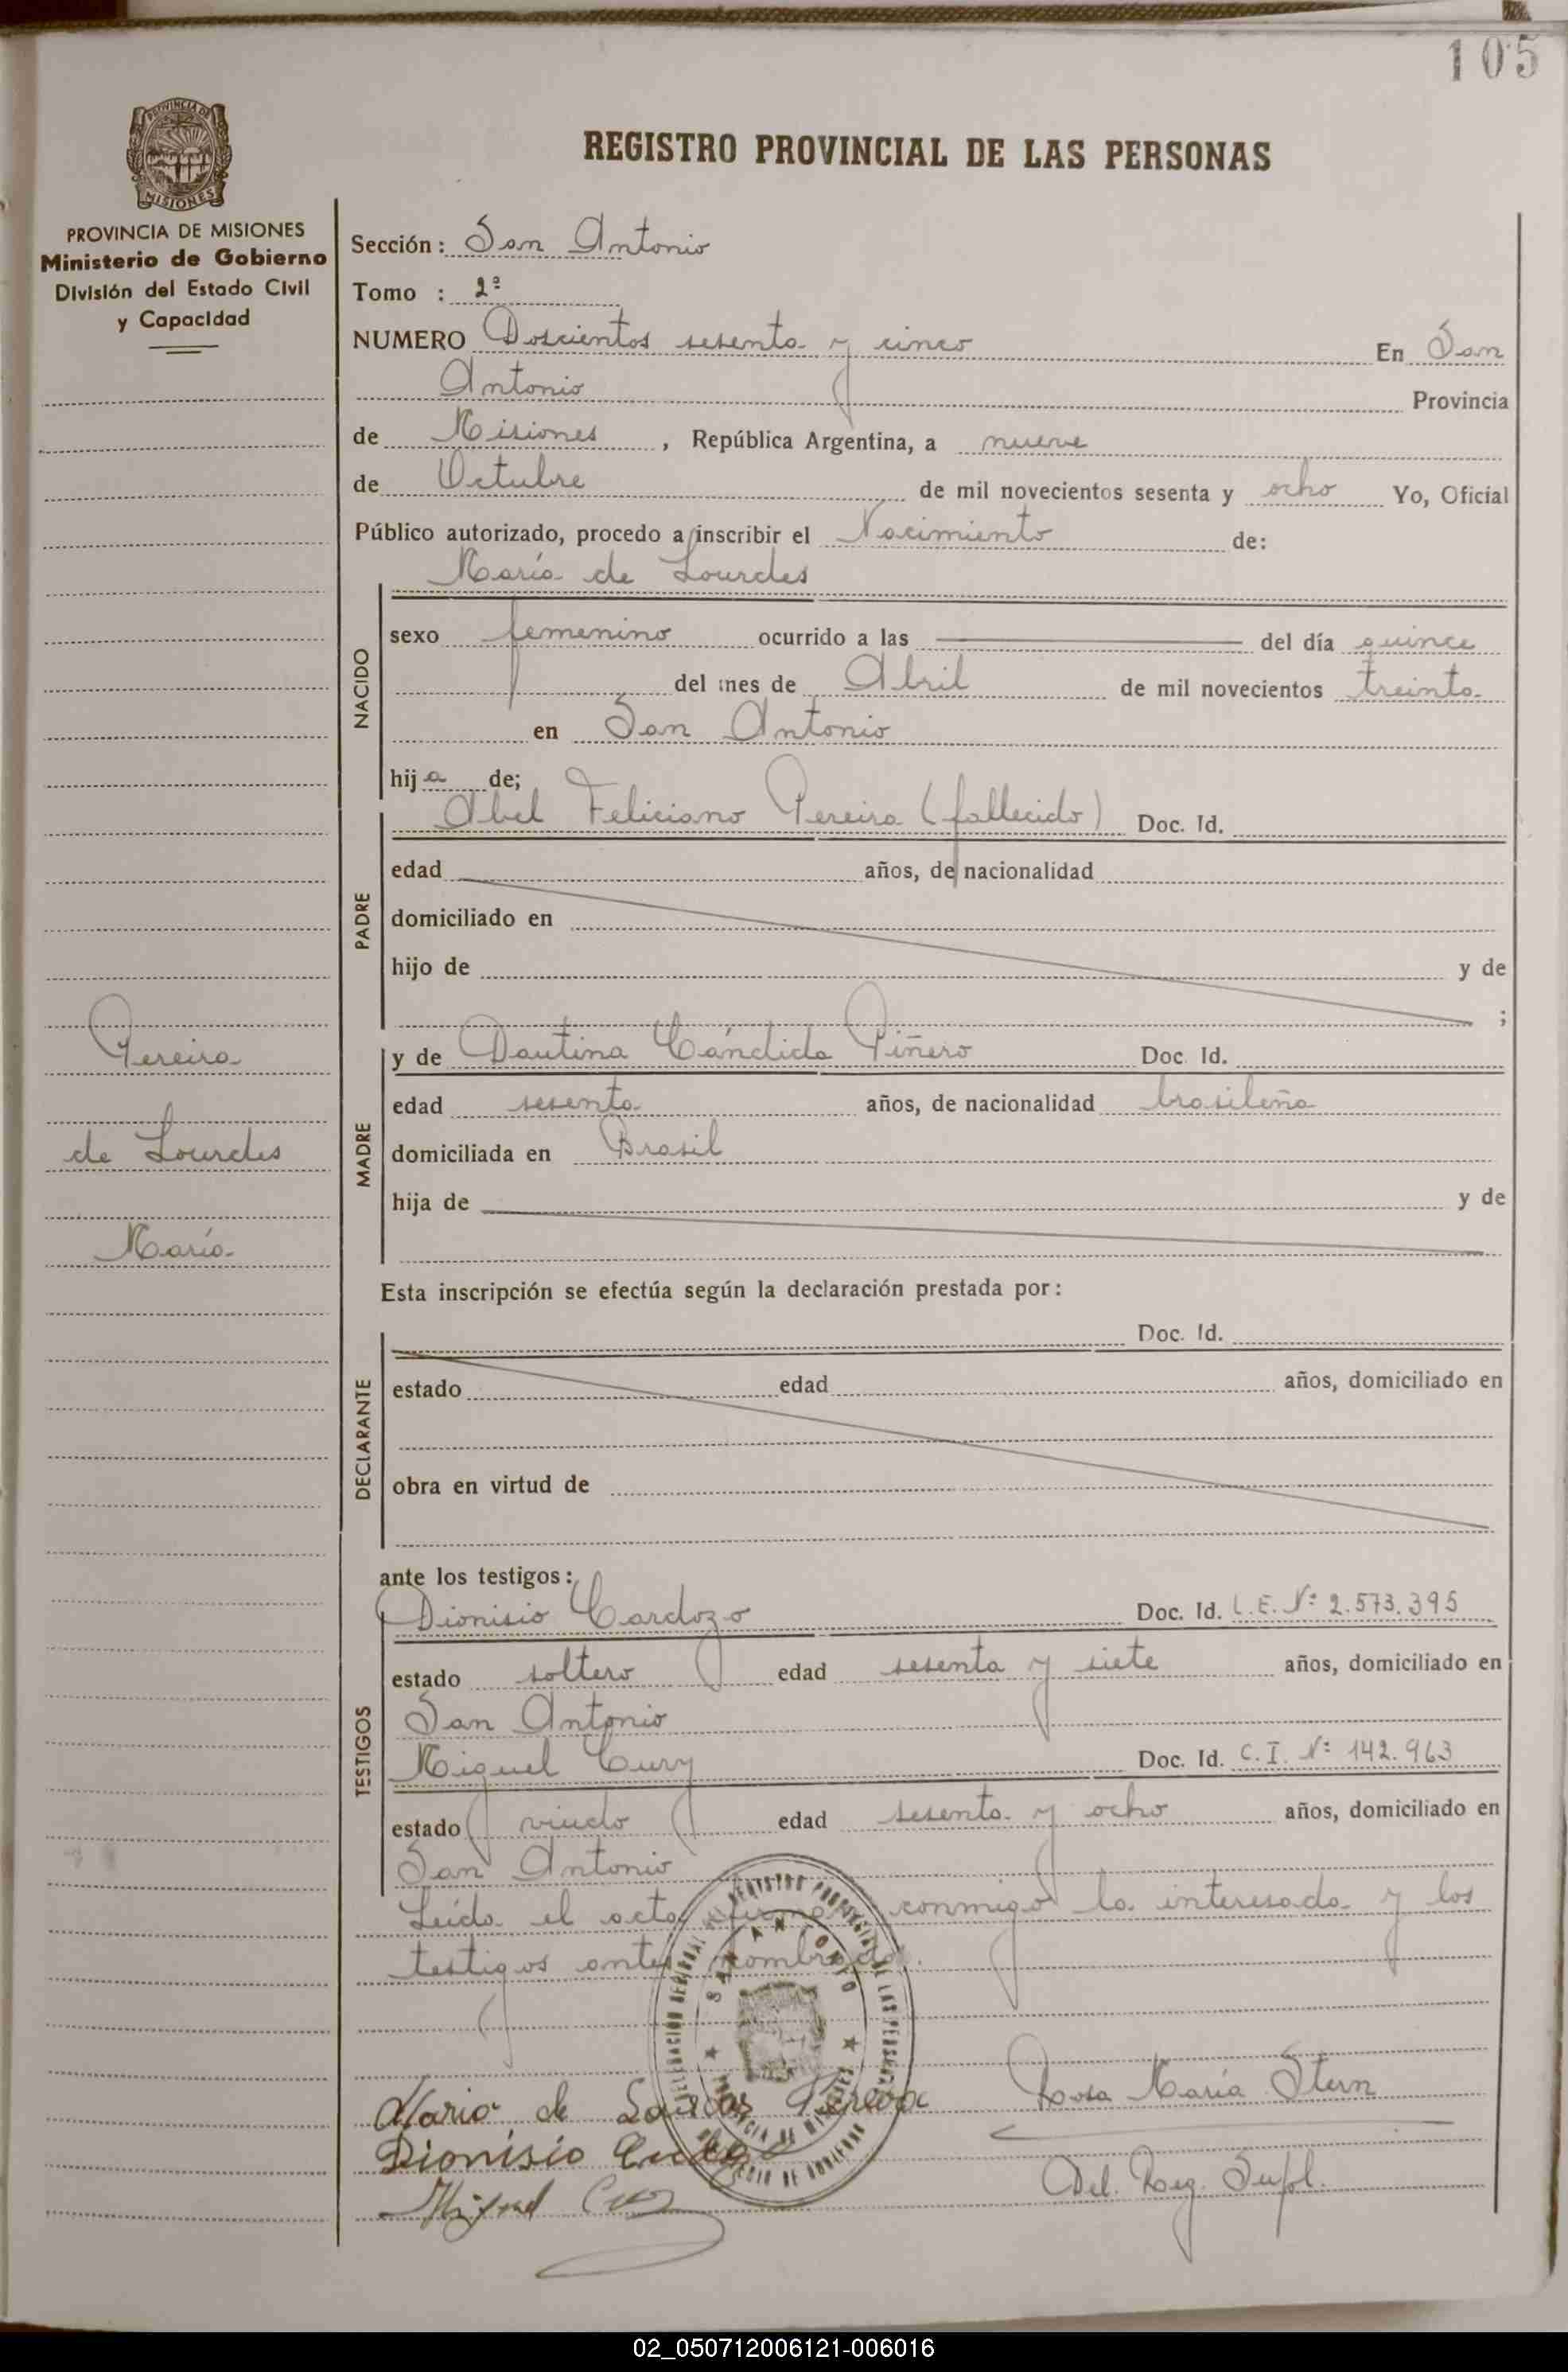 105
PROVINCIA DE MISIONES
PROVINCIA DE MISIONES
Ministerio de Gobierno
División del Estado Civil
y Capacidad
REGISTRO PROVINCIAL DE LAS PERSONAS
Sección: San Antonio
Tomo : 2º
NUMERO Doscientos sesenta y cinco En San
Antonio Provincia
de Misiones, República Argentina, a nueve
de Octubre de mil novecientos sesenta y ocho Yo, Oficial
Público autorizado, procedo a inscribir el Nacimiento de:
María de Lourdes
NACIDO
sexo femenino ocurrido a las del día quince
del mes de Abril de mil novecientos treinta
en San Antonio
hija de;
PADRE
Abel Feliciano Pereira (fallecido) Doc. Id.
edad años, de nacionalidad
domiciliado en
hijo de y de
;
Pereira
de Lourdes
María
MADRE
y de Dautina Cándida Piñero Doc. Id.
edad sesenta años, de nacionalidad brasileña
domiciliada en Brasil
hija de y de
Esta inscripción se efectúa según la declaración prestada por:
DECLARANTE
Doc. Id.
estado edad años, domiciliado en
obra en virtud de
ante los testigos:
TESTIGOS
Dionisio Cardozo Doc. Id. L.E. Nº 2.573.395
estado soltero edad sesenta y siete años, domiciliado en
San Antonio
Miguel Cury Doc. Id. C.I. Nº 142.963
estado viudo edad sesenta y ocho años, domiciliado en
San Antonio
Leída el acta firma conmigo la interesada y los
testigos antes nombrados.
DELEGACION SEGCIONAL DEL REGISTRO PROVINCIAL DE LAS PERSONAS
SAN ANTONIO
PROVINCIA DE MISIONES
MINISTERIO DE GOBIERNO
Maria de Lourdes Pereira
Rosa María Stern
Dionisio
Del. Reg. Supl.
Miguel Cury
02_050712006121-006016